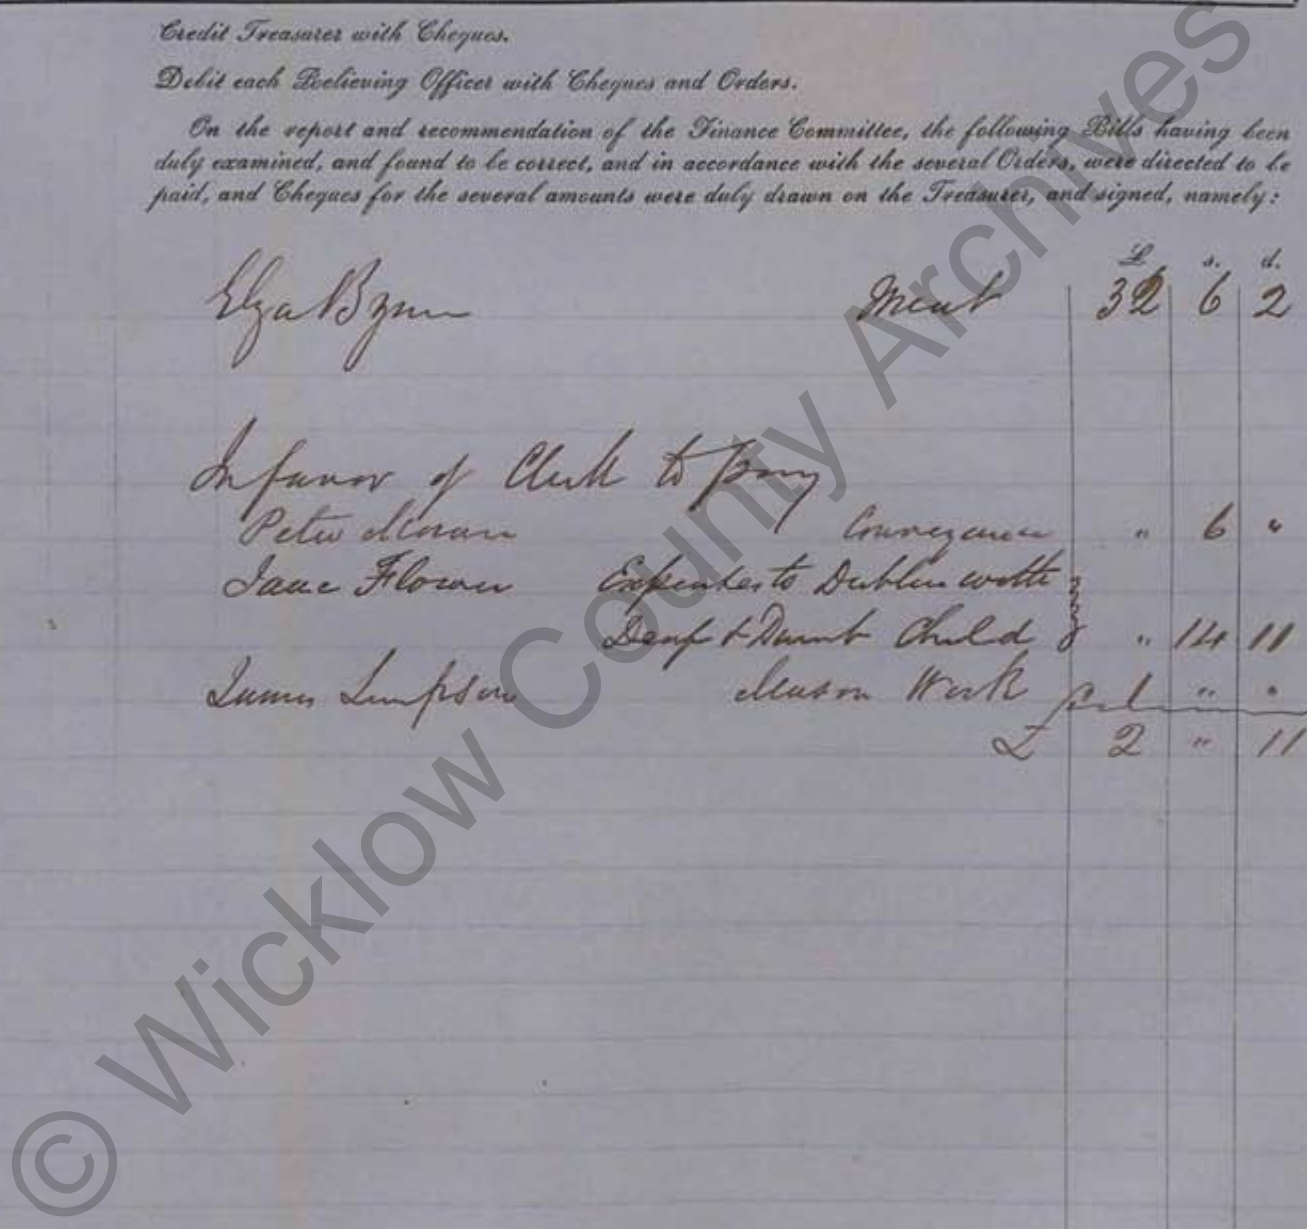 Credit Treasurer with Cheques.
Debit each Relieving Officer with Cheques and Orders.
On the report and recommendation of the Finance Committee, the following Bills having been
duly examined, and found to be correct, and in accordance with the several Orders, were directed to be
paid, and Cheques for the several amounts were duly drawn on the Treasurer, and signed, namely:
£ s. d.
Eliza Byrne Meat 32 6 2
In favor of Clerk to pay
Peter Moran Conveyance " 6 "
Jane Flower Expenses to Dublin with
Deaf & Dumb Child " 14 11
James Simpson Mason Work 1 " "
£ 2 " 11
© Wicklow County Archives